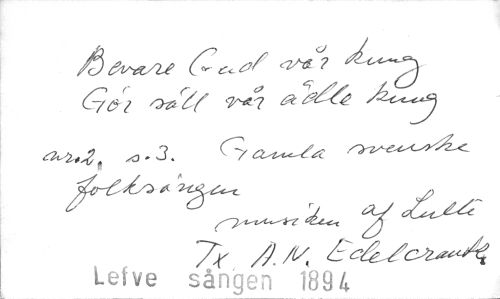 Bevare Gud vår kung
Gör säll vår ädle kung
nr.2. s.3. Gamla svenska
folksången
musiken af Lulli
Tx A.N. Edelcrantz
Lefve sången 1894